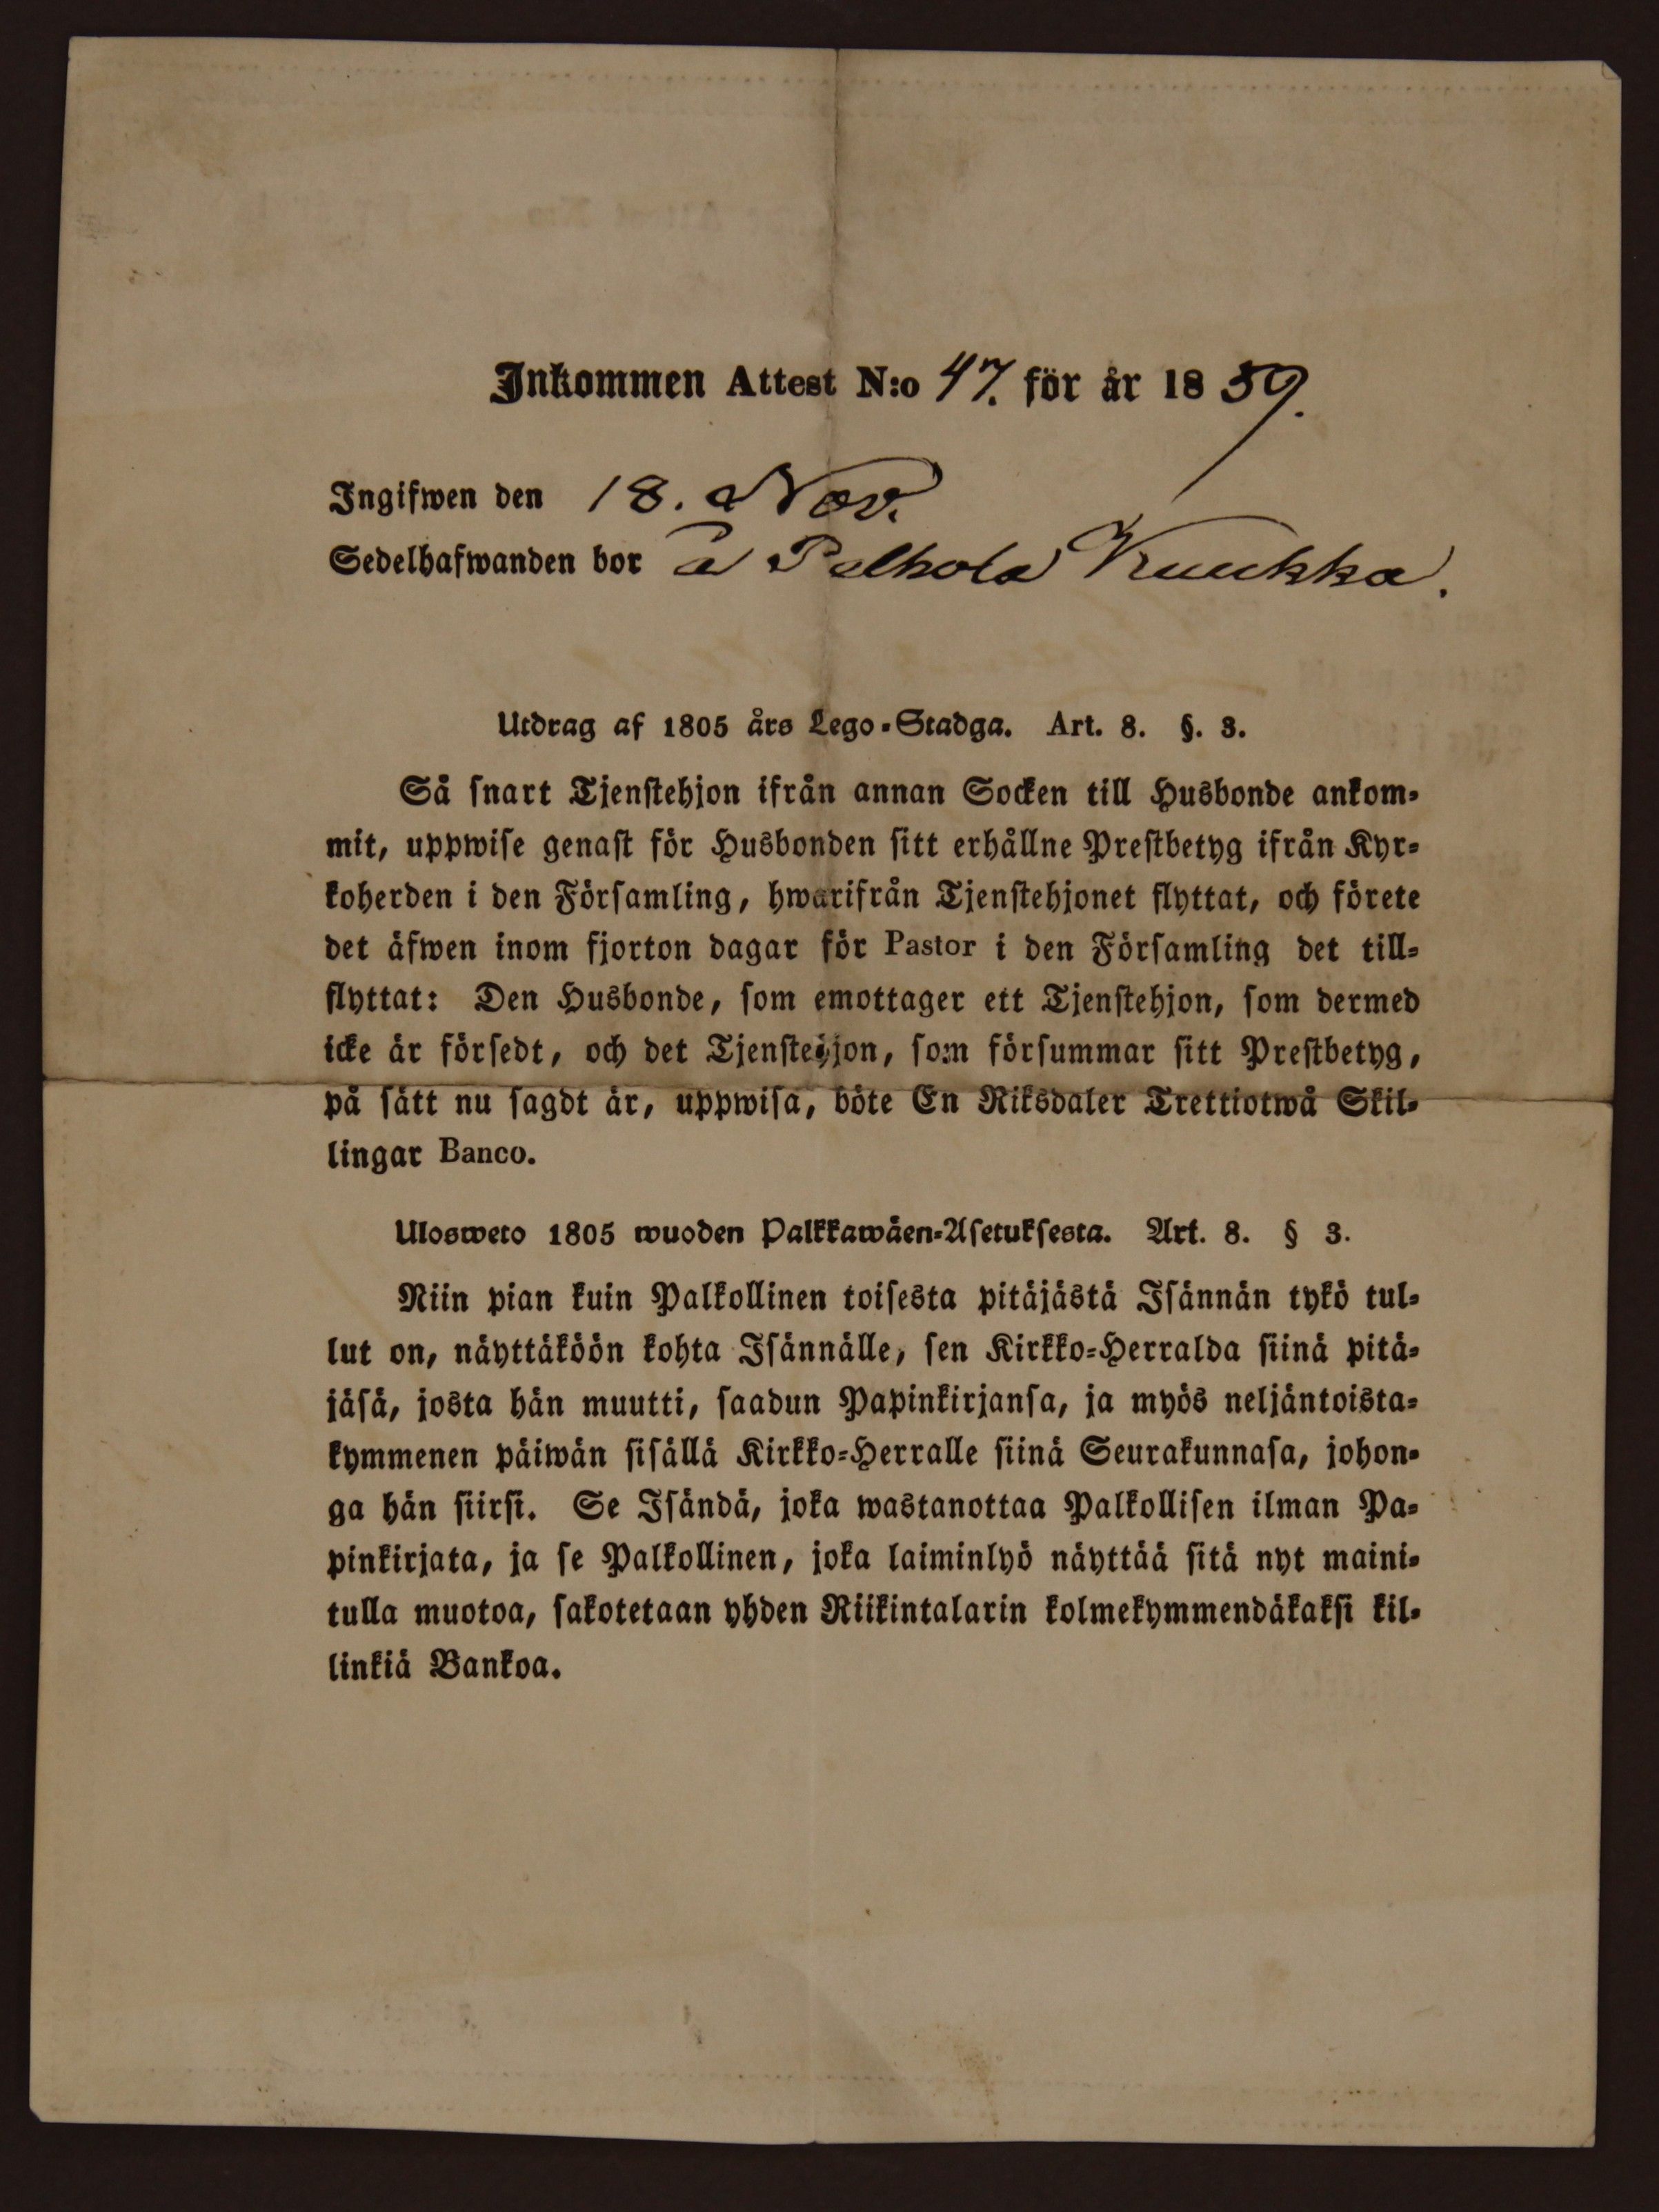 Inkommen Attest N:o 47. för år 1859.
Ingifwen den 18. Nov.
Sedelhafwanden bor å Pelkola Kuukka.
Utdrag af 1805 års Lego-Stadga. Art. 8. §. 3.
Så snart Tjenstehjon ifrån annan Socken till Husbonde ankom-
mit, uppwise genast för Husbonden sitt erhållne Prestbetyg ifrån Kyr-
koherden i den Församling, hwarifrån Tjenstehjonet flyttat, och förete
det äfwen inom fjorton dagar för Pastor i den Församling det till-
flyttat: Den Husbonde, som emottager ett Tjenstehjon, som dermed
icke är försedt, och det Tjenstehjon, som försummar sitt Prestbetyg,
på sätt nu sagdt är, uppwisa, böte En Riksdaler Trettiotwå Skil-
lingar Banco.
Ulosweto 1805 wuoden Palkkawäen-Asetuksesta. Art. 8. § 3.
Niin pian kuin Palkollinen toisesta pitäjästä Isännän tykö tul-
lut on, näyttäköön kohta Isännälle, sen Kirkko-Herralda siinä pitä-
jäsä, josta hän muutti, saadun Papinkirjansa, ja myös neljäntoista-
kymmenen päiwän sisällä Kirkko-Herralle siinä Seurakunnasa, johon-
ga hän siirsi. Se Isändä, joka wastanottaa Palkollisen ilman Pa-
pinkirjata, ja se Palkollinen, joka laiminlyö näyttää sitä nyt maini-
tulla muotoa, sakotetaan yhden Riikintalarin kolmekymmendäkaksi kil-
linkiä Bankoa.